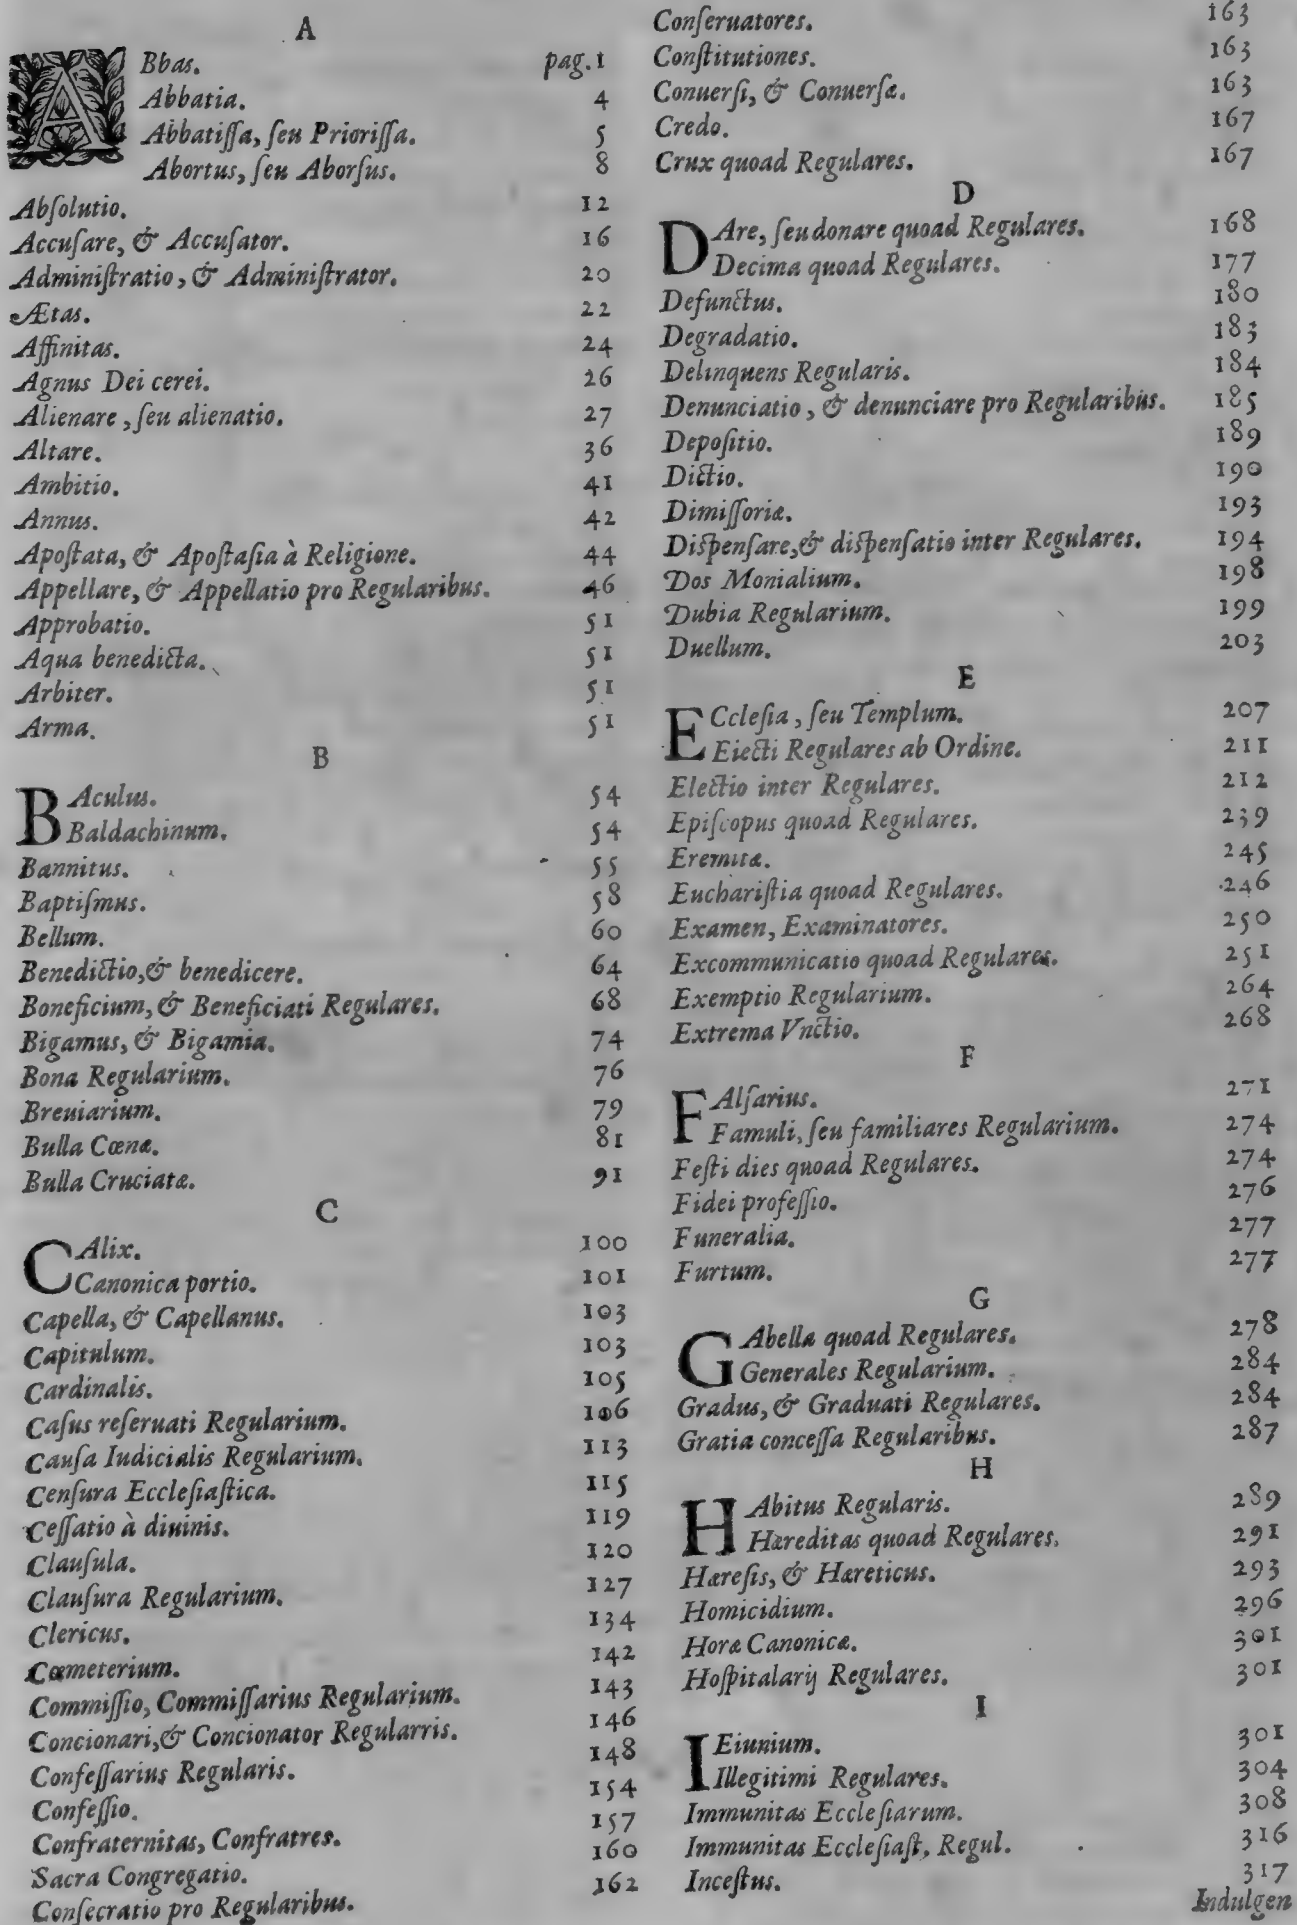 A
ABbas. pag. 1
Abbatia. 4
Abbatiſſa, ſeu Prioriſſa. 5
Abortus, ſeu Aborſus. 8
Abſolutio. 12
Accuſare, & Accuſator. 16
Adminiſtratio, & Adminiſtrator. 20
Ætas. 22
Affinitas. 24
Agnus Dei cerei. 26
Alienare, ſeu alienatio. 27
Altare. 36
Ambitio. 41
Annus. 42
Apoſtata, & Apoſtaſia à Religione. 44
Appellare, & Appellatio pro Regularibus. 46
Approbatio. 51
Aqua benedicta. 51
Arbiter. 51
Arma. 51
B
BAculus. 54
Baldachinum. 54
Bannitus. 55
Baptiſmus. 58
Bellum. 60
Benedictio, & benedicere. 64
Boneficium, & Beneficiati Regulares. 68
Bigamus, & Bigamia. 74
Bona Regularium. 76
Breuiarium. 79
Bulla Cœnæ. 81
Bulla Cruciatæ. 91
C
CAlix. 100
Canonica portio. 101
Capella, & Capellanus. 103
Capitulum. 103
Cardinalis. 105
Caſus reſeruati Regularium. 106
Cauſa Iudicialis Regularium. 113
Cenſura Eccleſiaſtica. 115
Ceſſatio à diuinis. 119
Clauſula. 120
Clauſura Regularium. 127
Clericus. 134
Cœmeterium. 142
Commiſſio, Commiſſarius Regularium. 143
Concionari, & Concionator Regularris. 146
Confeſſarius Regularis. 148
Confeſſio. 154
Confraternitas, Confratres. 157
Sacra Congregatio. 160
Conſecratio pro Regularibus. 162
Conſeruatores. 163
Conſtitutiones. 163
Conuerſi, & Conuerſæ. 163
Credo. 167
Crux quoad Regulares. 167
D
DAre, ſeu donare quoad Regulares. 168
Decima quoad Regulares. 177
Defunctus. 180
Degradatio. 183
Delinquens Regularis. 184
Denunciatio, & denunciare pro Regularibus. 185
Depoſitio. 189
Dictio. 190
Dimiſſoriæ. 193
Diſpenſare, & diſpenſatio inter Regulares. 194
Dos Monialium. 198
Dubia Regularium. 199
Duellum. 203
E
ECcleſia, ſeu Templum. 207
Eiecti Regulares ab Ordine. 211
Electio inter Regulares. 212
Epiſcopus quoad Regulares. 239
Eremitæ. 245
Euchariſtia quoad Regulares. 246
Examen, Examinatores. 250
Excommunicatio quoad Regulares. 251
Exemptio Regularium. 264
Extrema Vnctio. 268
F
FAlſarius. 271
Famuli, ſeu familiares Regularium. 274
Feſti dies quoad Regulares. 274
Fidei profeſſio. 276
Funeralia. 277
Furtum. 277
G
GAbella quoad Regulares. 278
Generales Regularium. 284
Gradus, & Graduati Regulares. 284
Gratia conceſſa Regularibus. 287
H
HAbitus Regularis. 289
Hæreditas quoad Regulares. 291
Hæreſis, & Hæreticus. 293
Homicidium. 296
Horæ Canonicæ. 301
Hoſpitalarij Regulares. 301
I
IEiunium. 301
Illegitimi Regulares. 304
Immunitas Eccleſiarum. 308
Immunitas Eccleſiaſt, Regul. 316
Inceſtus. 317
Indulgen